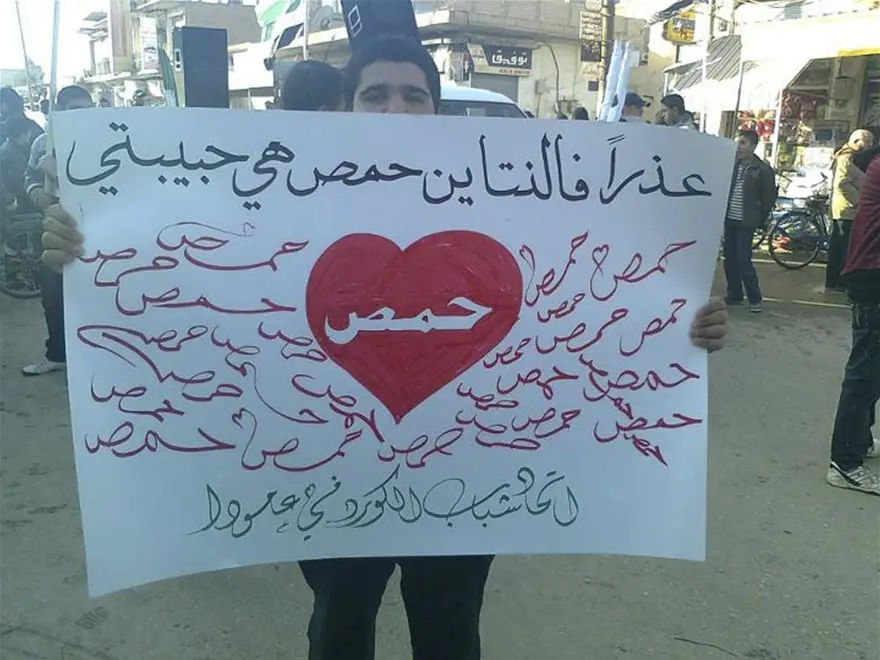 عذراً فالنتاين حمص هي حبيبتي
حمص حمص حمص حمص
حمص حمص حمص حمص
حمص
حمص حمص حمص حمص حمص
حمص حمص حمص حمص
حمص حمص حمص حمص
حمص حمص حمص حمص حمص
اتحاد شباب الكورد في عامودا